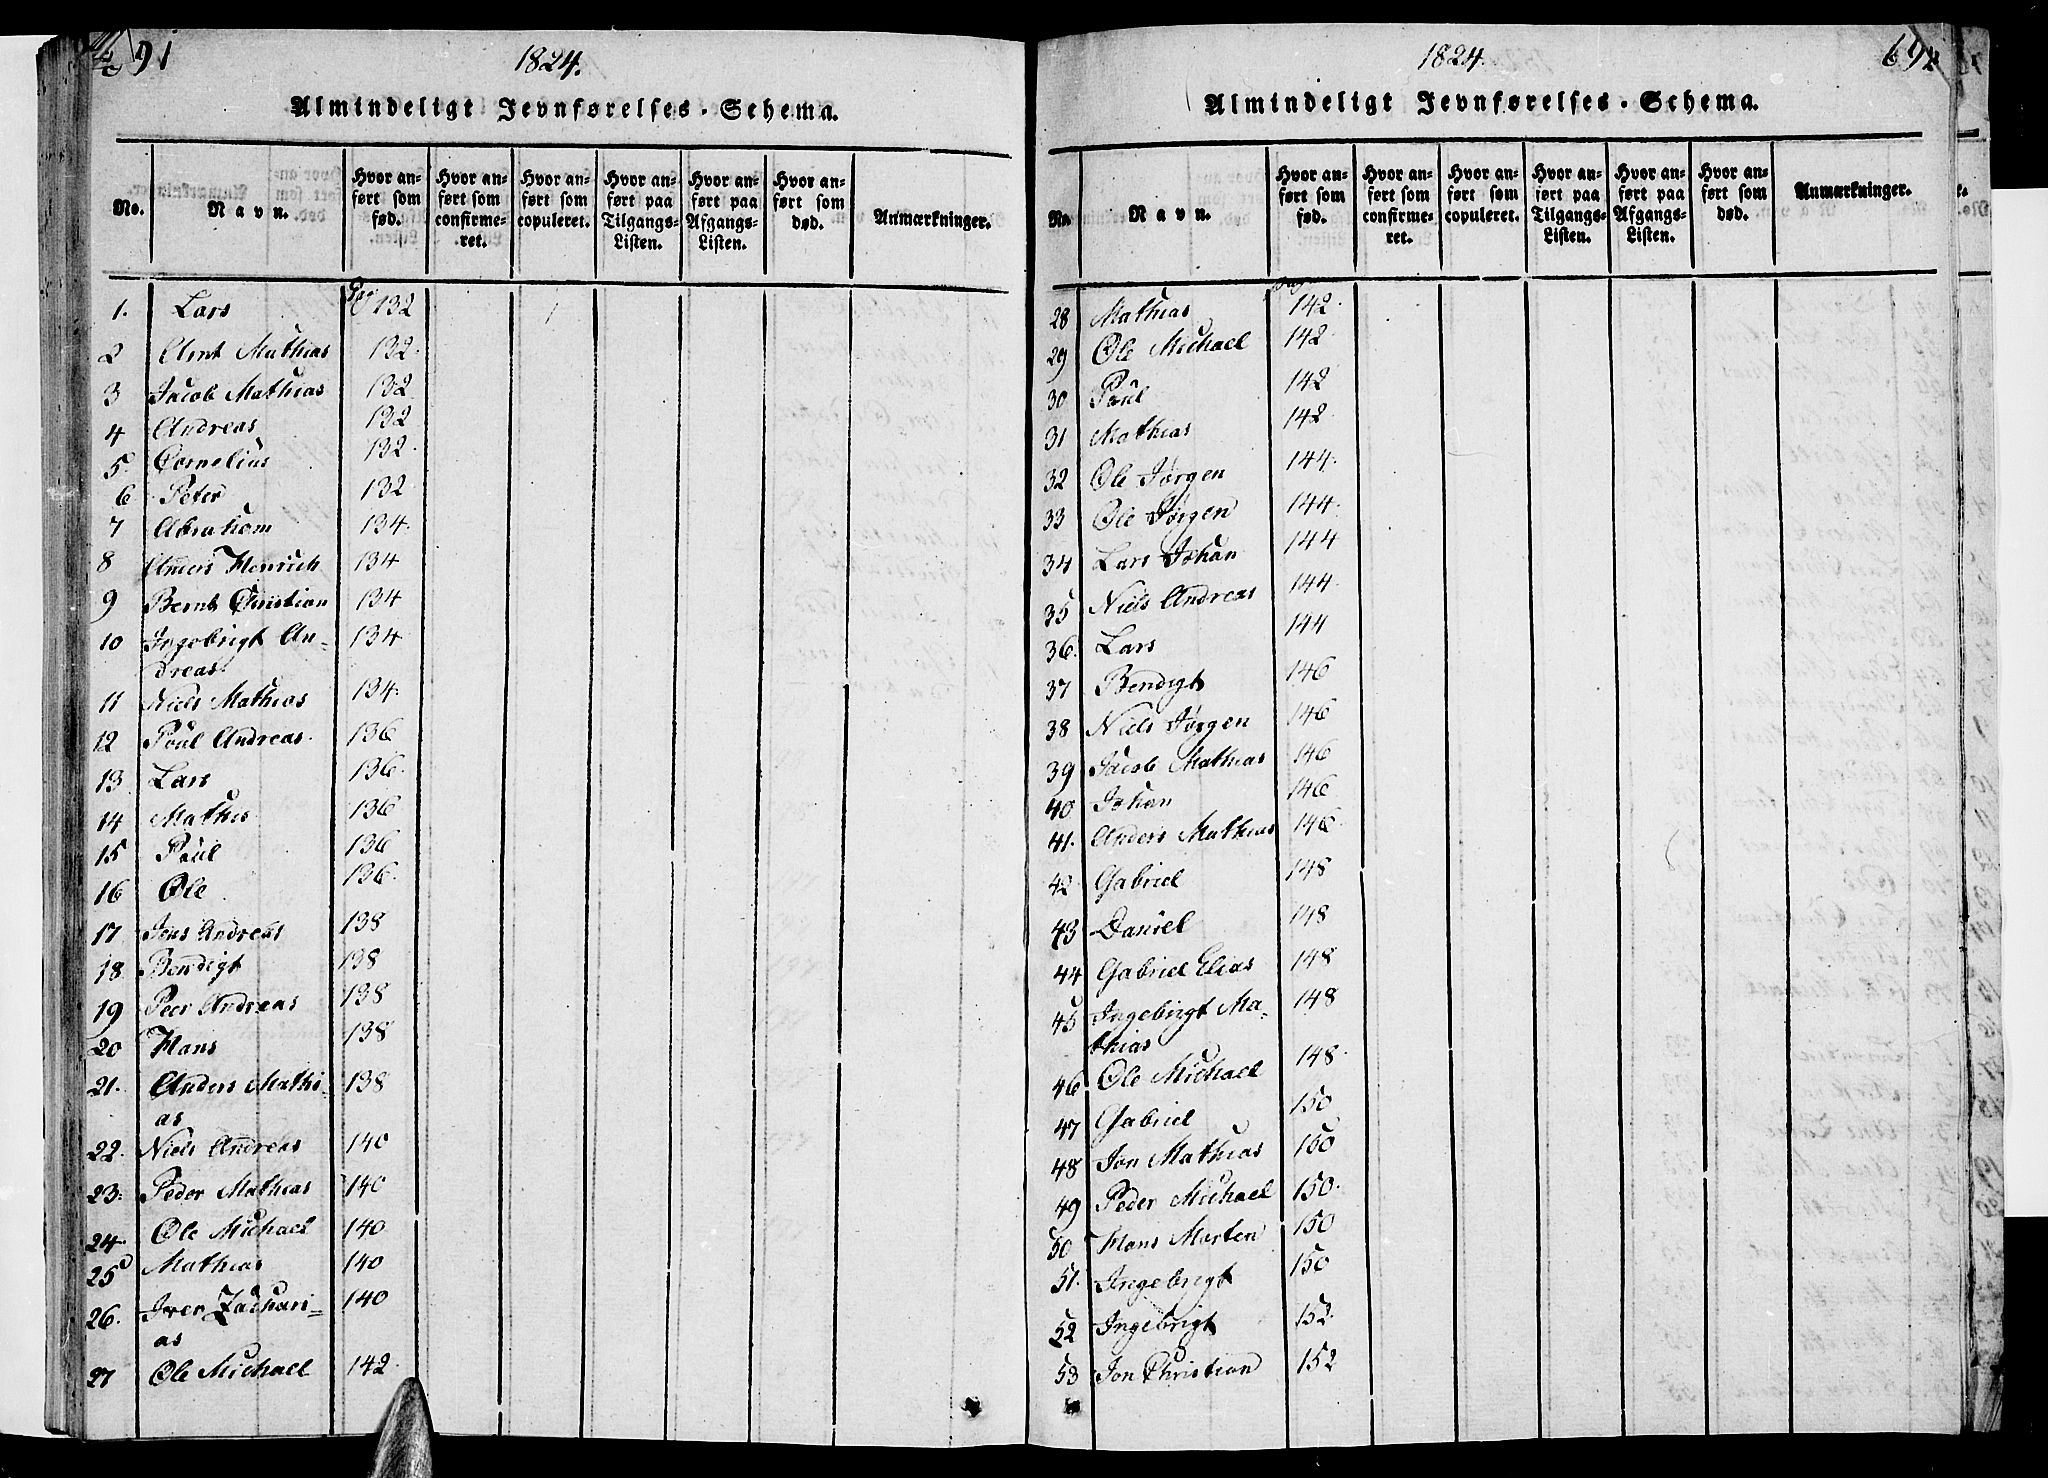 91
1824.
Almindeligt Jevnførelses-Schema.
No.
Navn.
Hvor anført som fød.
Hvor anført som confirmeret.
Hvor anført som copuleret.
Hvor anført paa Tilgangs-Listen.
Hvor anført paa Afgangs-Listen.
Hvor anført som død.
Anmærkninger.
1. Lars Pag 132
2 Arnt Mathias 132.
3 Jacob Mathias 132
4 Andreas 132
5. Cornelius 132.
6 Peter 132
7 Abraham 134.
8 Anders Henrich 134
9 Bernt Christian 134
10 Ingebrigt An-
dreas. 134
11 Niels Mathias 134.
12 Poul Andreas. 136
13 Lars 136.
14 Mathis 136
15 Poul 136
16 Ole 136.
17 Jens Andreas 138
18 Bendigt 138
19 Peer Andreas 138
20 Hans 138
21. Anders Mathi-
as 138
22. Niels Andreas 140
23. Peder Mathias 140
24. Ole Michael 140
25 Mathias 140
26. Iver Zachari-
as 140
27 Ole Michael 142.
1824.
Almindeligt Jevnførelses-Schema.
No.
Navn.
Hvor anført som fød.
Hvor anført som confirmeret.
Hvor anført som copuleret.
Hvor anført paa Tilgangs-Listen.
Hvor anført paa Afgangs-Listen.
Hvor anført som død.
Anmærkninger.
28 Mathias Pag 142.
29 Ole Michael 142.
30 Poul 142
31 Mathias 142.
32 Ole Jørgen 144.
33 Ole Jørgen 144.
34 Lars Johan 144
35 Niels Andreas 144.
36. Lars 144
37 Bendigt 146
38 Niels Jørgen 146
39 Jacob Mathias 146
40 Johan 146
41. Anders Mathias 146.
42 Gabriel 148
43 Daniel 148
44 Gabriel Elias 148
45 Ingebrigt Ma-
thias 148
46 Ole Michael 148.
47 Gabriel 150
48 Jon Mathias 150
49 Peder Michael 150.
50 Hans Morten 150
51. Ingebrigt 150
52 Ingebrigt 152.
53 Jon Christian 152